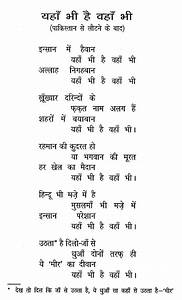 यहाँ भी है वहाँ भी
(पाकिस्तान से लौटने के बाद)
इन्सान में हैवान
यहाँ भी है वहाँ भी
अल्लाह निगहबान
यहाँ भी है वहाँ भी।
खूँख्वार दरिन्दों के
फ़क़त नाम अलग हैं
शहरों में बयाबान
यहाँ भी है वहाँ भी।
रहमान की कुदरत हो
या भगवान की मूरत
हर खेल का मैदान
यहाँ भी है वहाँ भी।
हिन्दू भी मज़े में है
मुसलमाँ भी मज़े में
इन्सान परेशान
यहाँ भी है वहाँ भी।
उठता* है दिलो-जाँ से
धुआँ दोनों तरफ़ ही
ये 'मीर' का दीवान
यहाँ भी है वहाँ भी।
* देख तो दिल कि जाँ से उठता है, ये धुआँ सा कहाँ से उठता है–'मीर'